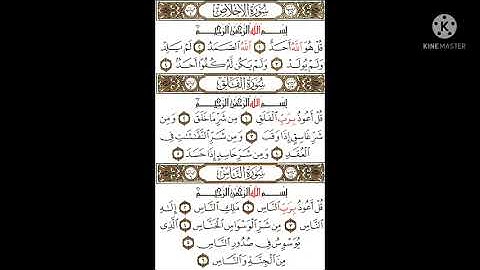 سُورَةُ الإِخْلَاصِ
بِسْمِ اللَّهِ الرَّحْمَنِ الرَّحِيمِ
قُلْ هُوَ اللَّهُ أَحَدٌ ١ اللَّهُ الصَّمَدُ ٢ لَمْ يَلِدْ
وَلَمْ يُولَدْ ٣ وَلَمْ يَكُن لَّهُ كُفُوًا أَحَدٌ ٤
سُورَةُ الفَلَقِ
بِسْمِ اللَّهِ الرَّحْمَنِ الرَّحِيمِ
قُلْ أَعُوذُ بِرَبِّ الْفَلَقِ ١ مِن شَرِّ مَا خَلَقَ ٢ وَمِن
شَرِّ غَاسِقٍ إِذَا وَقَبَ ٣ وَمِن شَرِّ النَّفَّاثَاتِ فِي
الْعُقَدِ ٤ وَمِن شَرِّ حَاسِدٍ إِذَا حَسَدَ ٥
سُورَةُ النَّاسِ
بِسْمِ اللَّهِ الرَّحْمَنِ الرَّحِيمِ
قُلْ أَعُوذُ بِرَبِّ النَّاسِ ١ مَلِكِ النَّاسِ ٢ إِلَهِ
النَّاسِ ٣ مِن شَرِّ الْوَسْوَاسِ الْخَنَّاسِ ٤ الَّذِي
يُوَسْوِسُ فِي صُدُورِ النَّاسِ ٥
مِنَ الْجِنَّةِ وَالنَّاسِ ٦
Made with
KINEMASTER